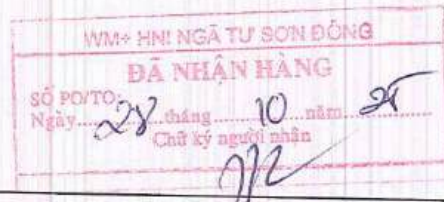 WM+ HNI NGÃ TƯ SƠN ĐỒNG
ĐÃ NHẬN HÀNG
SỐ PO/TO:
Ngày 28 tháng 10 năm 25
Chữ ký người nhận